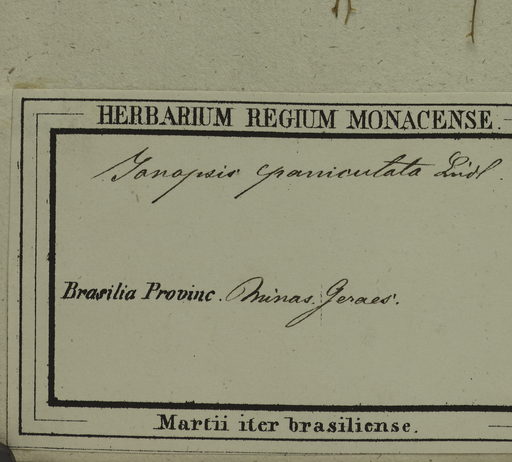 HERBARIUM REGIUM MONACENSE.
Jonopsis paniculata Lindl
Brasilia Provinc. Minas Geraes.
Martii iter brasiliense.